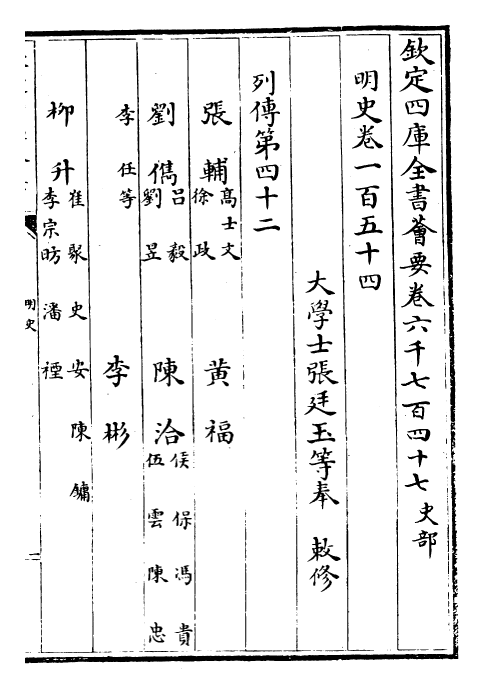 欽定四庫全書薈要卷六千七百四十七 史部
明史卷一百五十四
大學士張廷玉等奉 敕修
列傳第四十二
張輔 高士文 徐政 黃福
劉儁 呂毅 劉昱 陳洽 侯保 馮貴 伍雲 陳忠
李任等 李彬
柳升 崔聚 史安 陳鏞 李宗昉 潘禋
明史